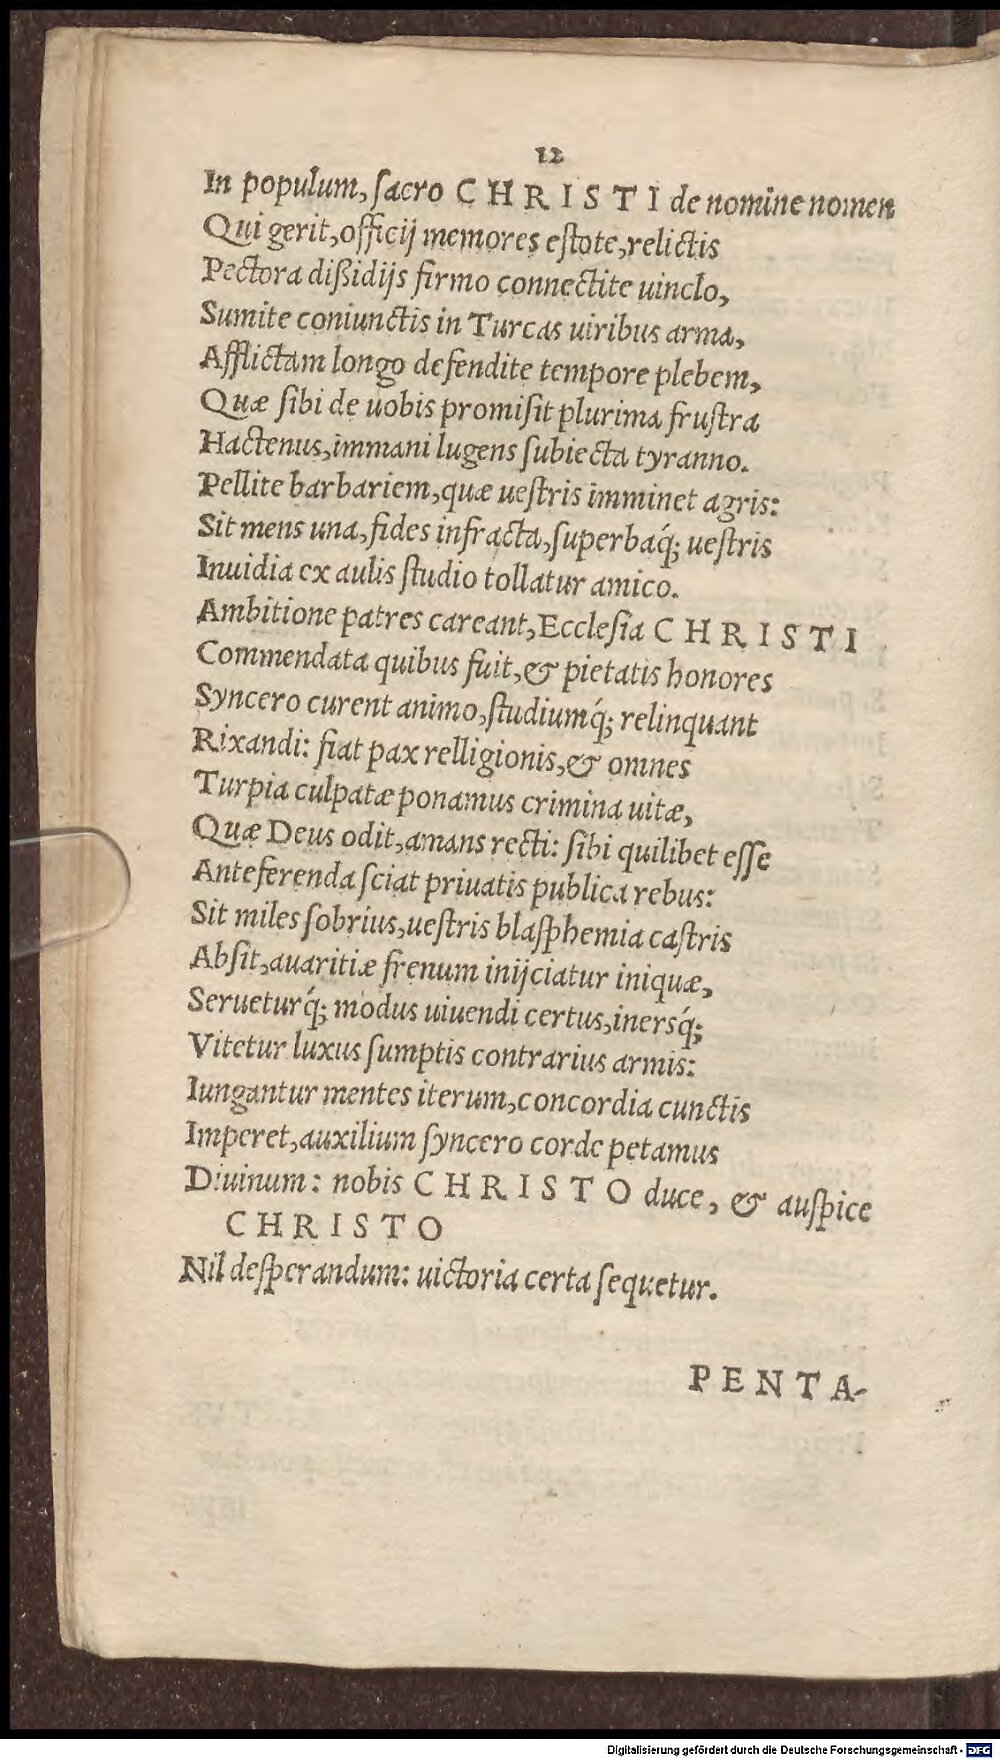 12
In populum, ſacro CHRISTI de nomine nomen
Qui gerit, officij memores eſtote, relictis
Pectora dißidijs firmo connectite uinclo,
Sumite coniunctis in Turcas uiribus arma,
Afflictam longo defendite tempore plebem,
Quæ ſibi de uobis promiſit plurima fruſtra
Hactenus, immani lugens ſubiecta tyranno.
Pellite barbariem, quæ ueſtris imminet agris:
Sit mens una, fides infracta, ſuperbaq́; ueſtris
Inuidia ex aulis ſtudio tollatur amico.
Ambitione patres careant, Eccleſia CHRISTI
Commendata quibus fuit, & pietatis honores
Syncero curent animo, ſtudiumq́; relinquant
Rixandi: fiat pax relligionis, & omnes
Turpia culpatæ ponamus crimina uitæ,
Quæ Deus odit, amans recti: ſibi quilibet eſſe
Anteferenda ſciat priuatis publica rebus:
Sit miles ſobrius, ueſtris blaſphemia caſtris
Abſit, auaritiæ frenum inijciatur iniquæ,
Serueturq́; modus uiuendi certus, inersq́;
Vitetur luxus ſumptis contrarius armis:
Iungantur mentes iterum, concordia cunctis
Imperet, auxilium ſyncero corde petamus
Diuinum: nobis CHRISTO duce, & auſpice
CHRISTO
Nil deſperandum: uictoria certa ſequetur.
PENTA-
Digitalisierung gefördert durch die Deutsche Forschungsgemeinschaft - DFG